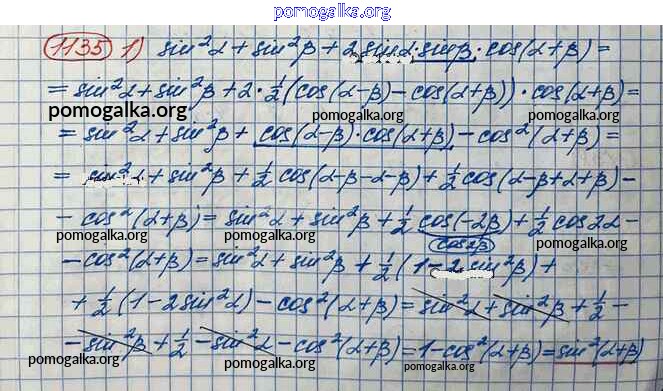 pomogalka.org
1135 1) sin²α + sin²β + 2 sinα · sinβ · cos(α+β) =
= sin²α + sin²β + 2 · ½ (cos(α-β) - cos(α+β)) · cos(α+β) =
pomogalka.org pomogalka.org pomogalka.org
= sin²α + sin²β + cos(α-β) · cos(α+β) - cos²(α+β) =
pomogalka.org
= sin²α + sin²β + ½ cos(α-β-α-β) + ½ cos(α-β+α+β) -
- cos²(α+β) = sin²α + sin²β + ½ cos(-2β) + ½ cos2α -
cos2β
pomogalka.org pomogalka.org pomogalka.org
- cos²(α+β) = sin²α + sin²β + ½ (1 - 2 sin²β) +
+ ½ (1 - 2 sin²α) - cos²(α+β) = sin²α + sin²β + ½ -
pomogalka.org pomogalka.org pomogalka.org
- sin²β + ½ - sin²α - cos²(α+β) = 1 - cos²(α+β) = sin²(α+β)
pomogalka.org pomogalka.org pomogalka.org